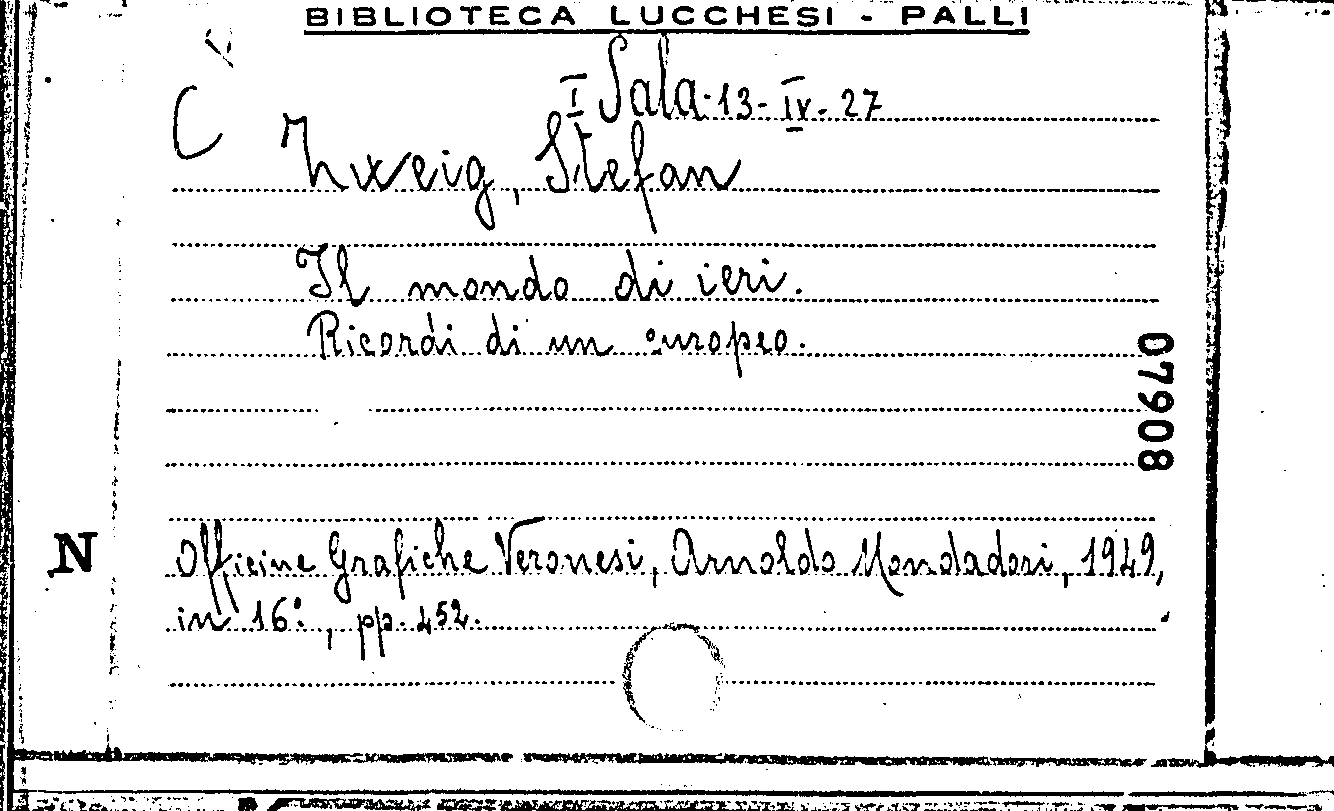 BIBLIOTECA LUCCHESI - PALLI
I Sala-13-IV-27
C
Zweig, Stefan
Il mondo di ieri.
Ricordi di un europeo.
07908
N
Officine Grafiche Veronesi, Arnoldo Mondadori, 1949,
in 16°, pp. 452.